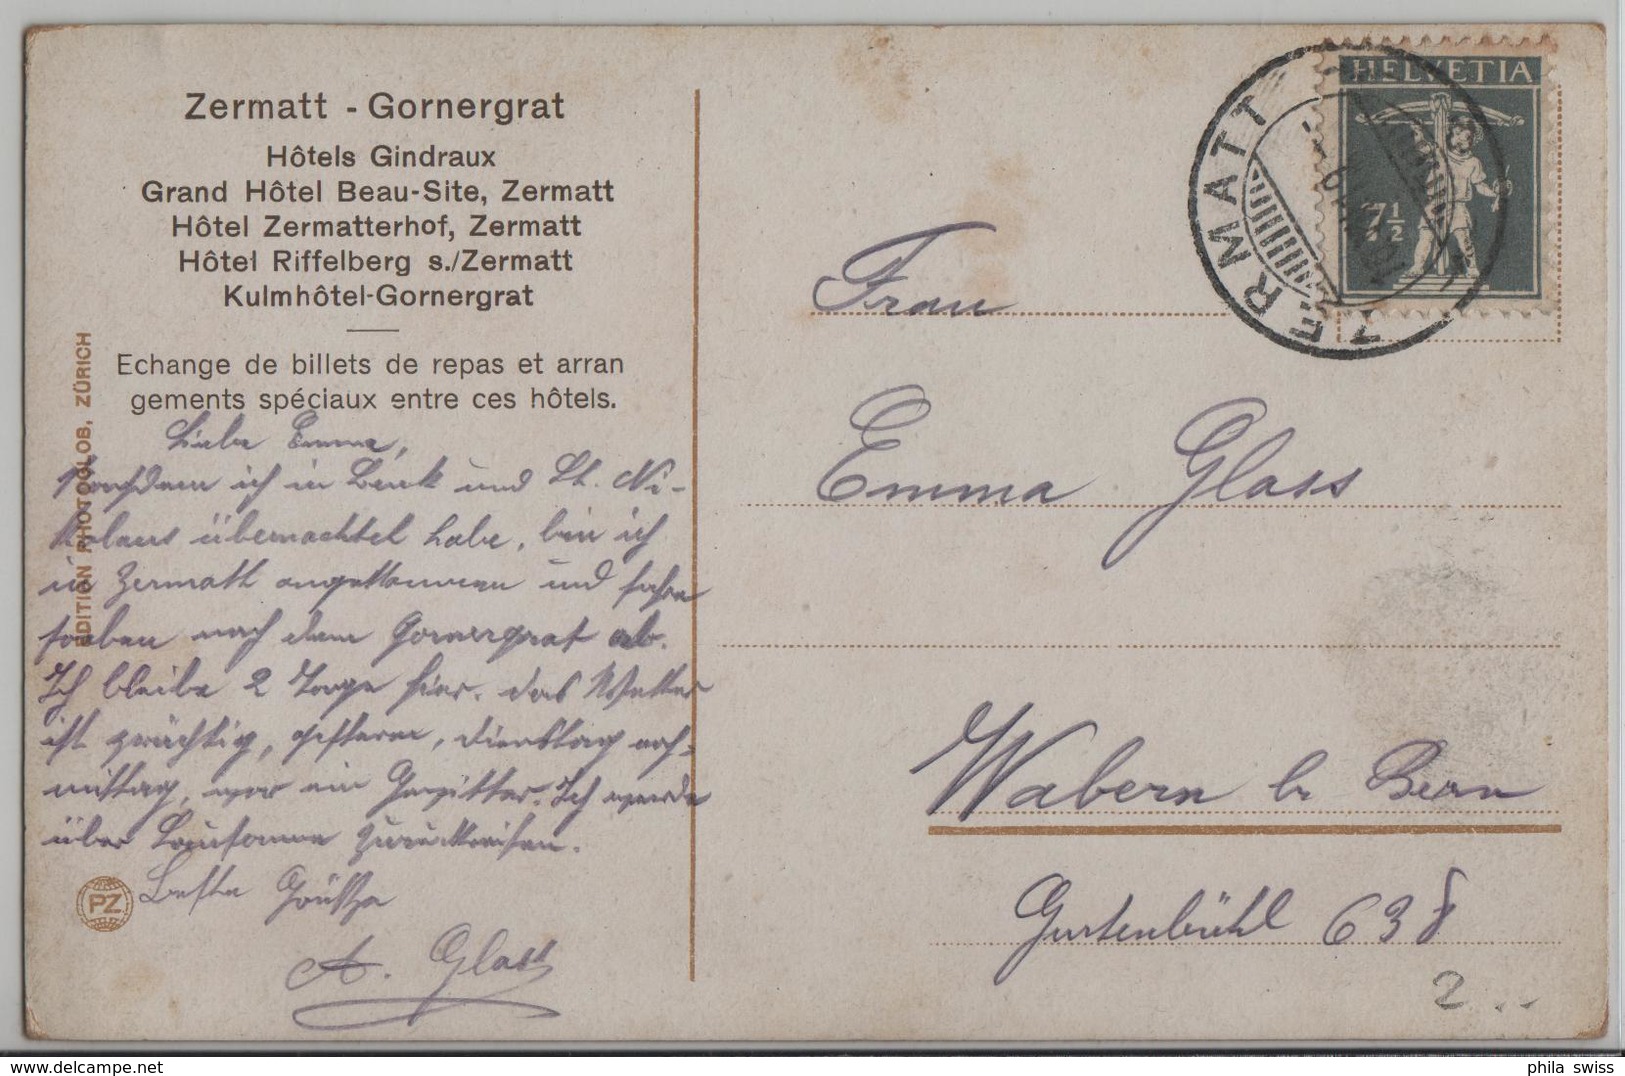 Zermatt - Gornergrat
Hôtels Gindraux
Grand Hôtel Beau-Site, Zermatt
Hôtel Zermatterhof, Zermatt
Hôtel Riffelberg s./Zermatt
Kulmhôtel-Gornergrat
Echange de billets de repas et arran
gements spéciaux entre ces hôtels.
EDITION PHOTOGLOB, ZÜRICH
Liebe Emma,
Nachdem ich in und St. Ni-
kolaus übernachtet habe, bin ich
in Zermatt angekommen und fahre
soeben nach dem Gornergrat ab.
Ich bleibe 2 Tage hier. Das Wetter
ist prächtig, gestern, Dienstag nach-
mittag, war ein Gewitter. Ich werde
über Lausanne zurückreisen.
Beste Grüsse
A. Glass
PZ
HELVETIA
7½
ZERMATT
Frau
Emma Glass
Wabern b. Bern
Gurtenbühl 638
2
phila swiss